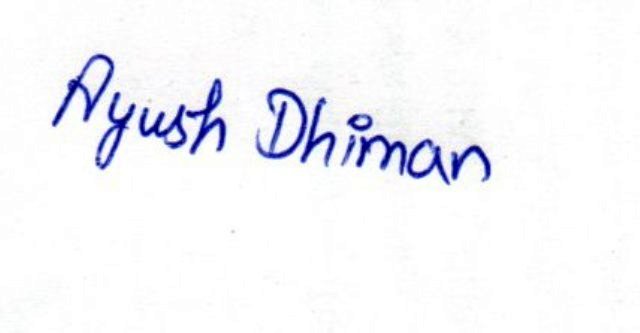 Ayush Dhiman